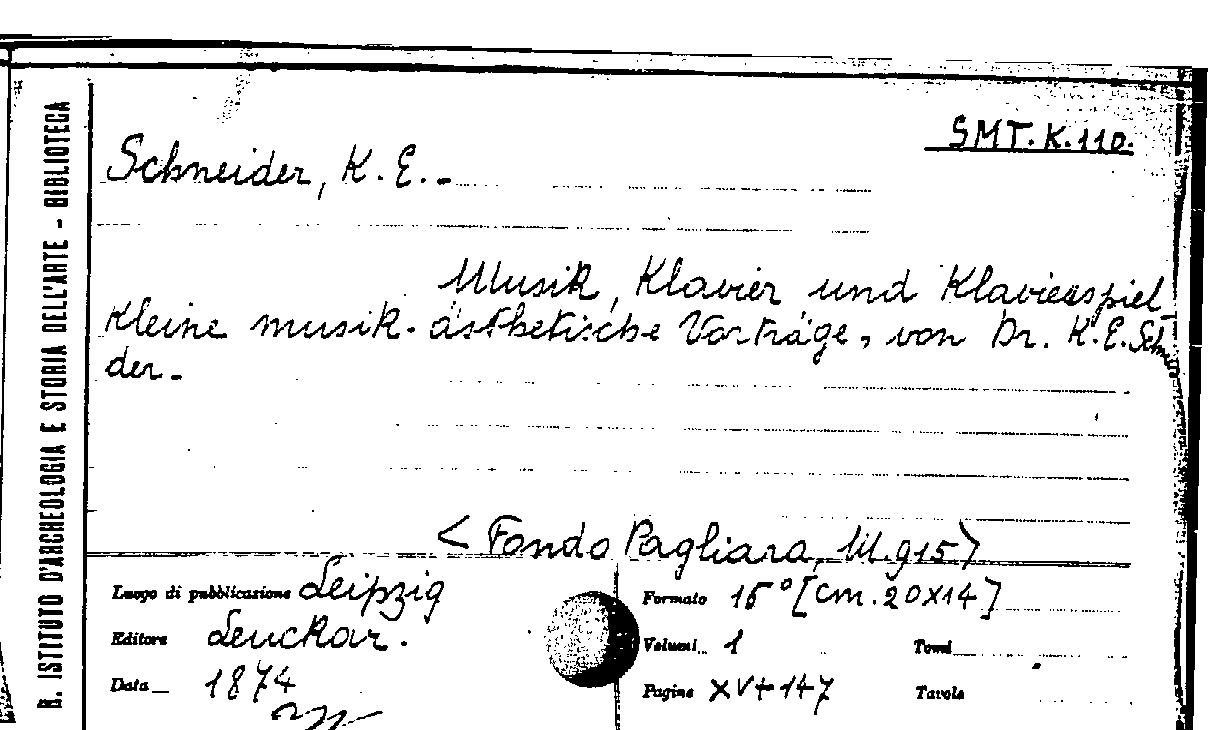 R. ISTITUTO D'ARCHEOLOGIA E STORIA DELL'ARTE - BIBLIOTECA
SMT. K. 110.
Schneider, K. E. -
Musik, Klavier und Klavierspiel,
Kleine musik-ästhetische Vorträge, von Dr. K. E. Schnei
der. -
< Fondo Pagliara, M.915 >
Luogo di pubblicazione Leipzig
Formato 16° [cm. 20x14]
Editore Leuckar.
Volumi 1 Tomi
Data 1874
Pagine XV+147 Tavole